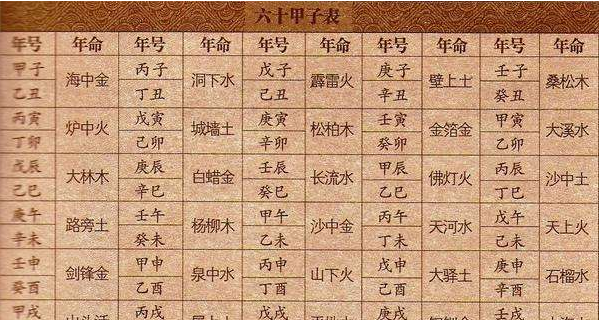 六十甲子表
年号 年命 年号 年命 年号 年命 年号 年命 年号 年命
甲子 丙子 戊子 庚子 壬子
海中金 洞下水 霹雷火 壁上土 桑松木
乙丑 丁丑 己丑 辛丑 癸丑
丙寅 戊寅 庚寅 壬寅 甲寅
炉中火 城墙土 松柏木 金箔金 大溪水
丁卯 己卯 辛卯 癸卯 乙卯
戊辰 庚辰 壬辰 甲辰 丙辰
大林木 白蜡金 长流水 佛灯火 沙中土
己巳 辛巳 癸巳 乙巳 丁巳
庚午 壬午 甲午 丙午 戊午
路旁土 杨柳木 沙中金 天河水 天上火
辛未 癸未 乙未 丁未 己未
壬申 甲申 丙申 戊申 庚申
剑锋金 泉中水 山下火 大驿土 石榴水
癸酉 乙酉 丁酉 己酉 辛酉
甲戌 丙戌 戊戌 庚戌 壬戌